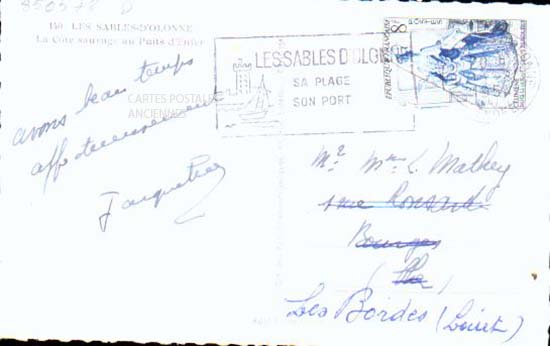 850578 D
150 LES SABLES-D'OLONNE
La Côte sauvage au Puits d'Enfer
LES SABLES D'OLONNE
SA PLAGE
SON PORT
CARTES POSTALES
ANCIENNES
avons beau temps
affectueusement
Jacqueline
Mr Mme L. Mathey
rue Ronsard
Bourges
(Cher)
Les Bordes (Loiret)